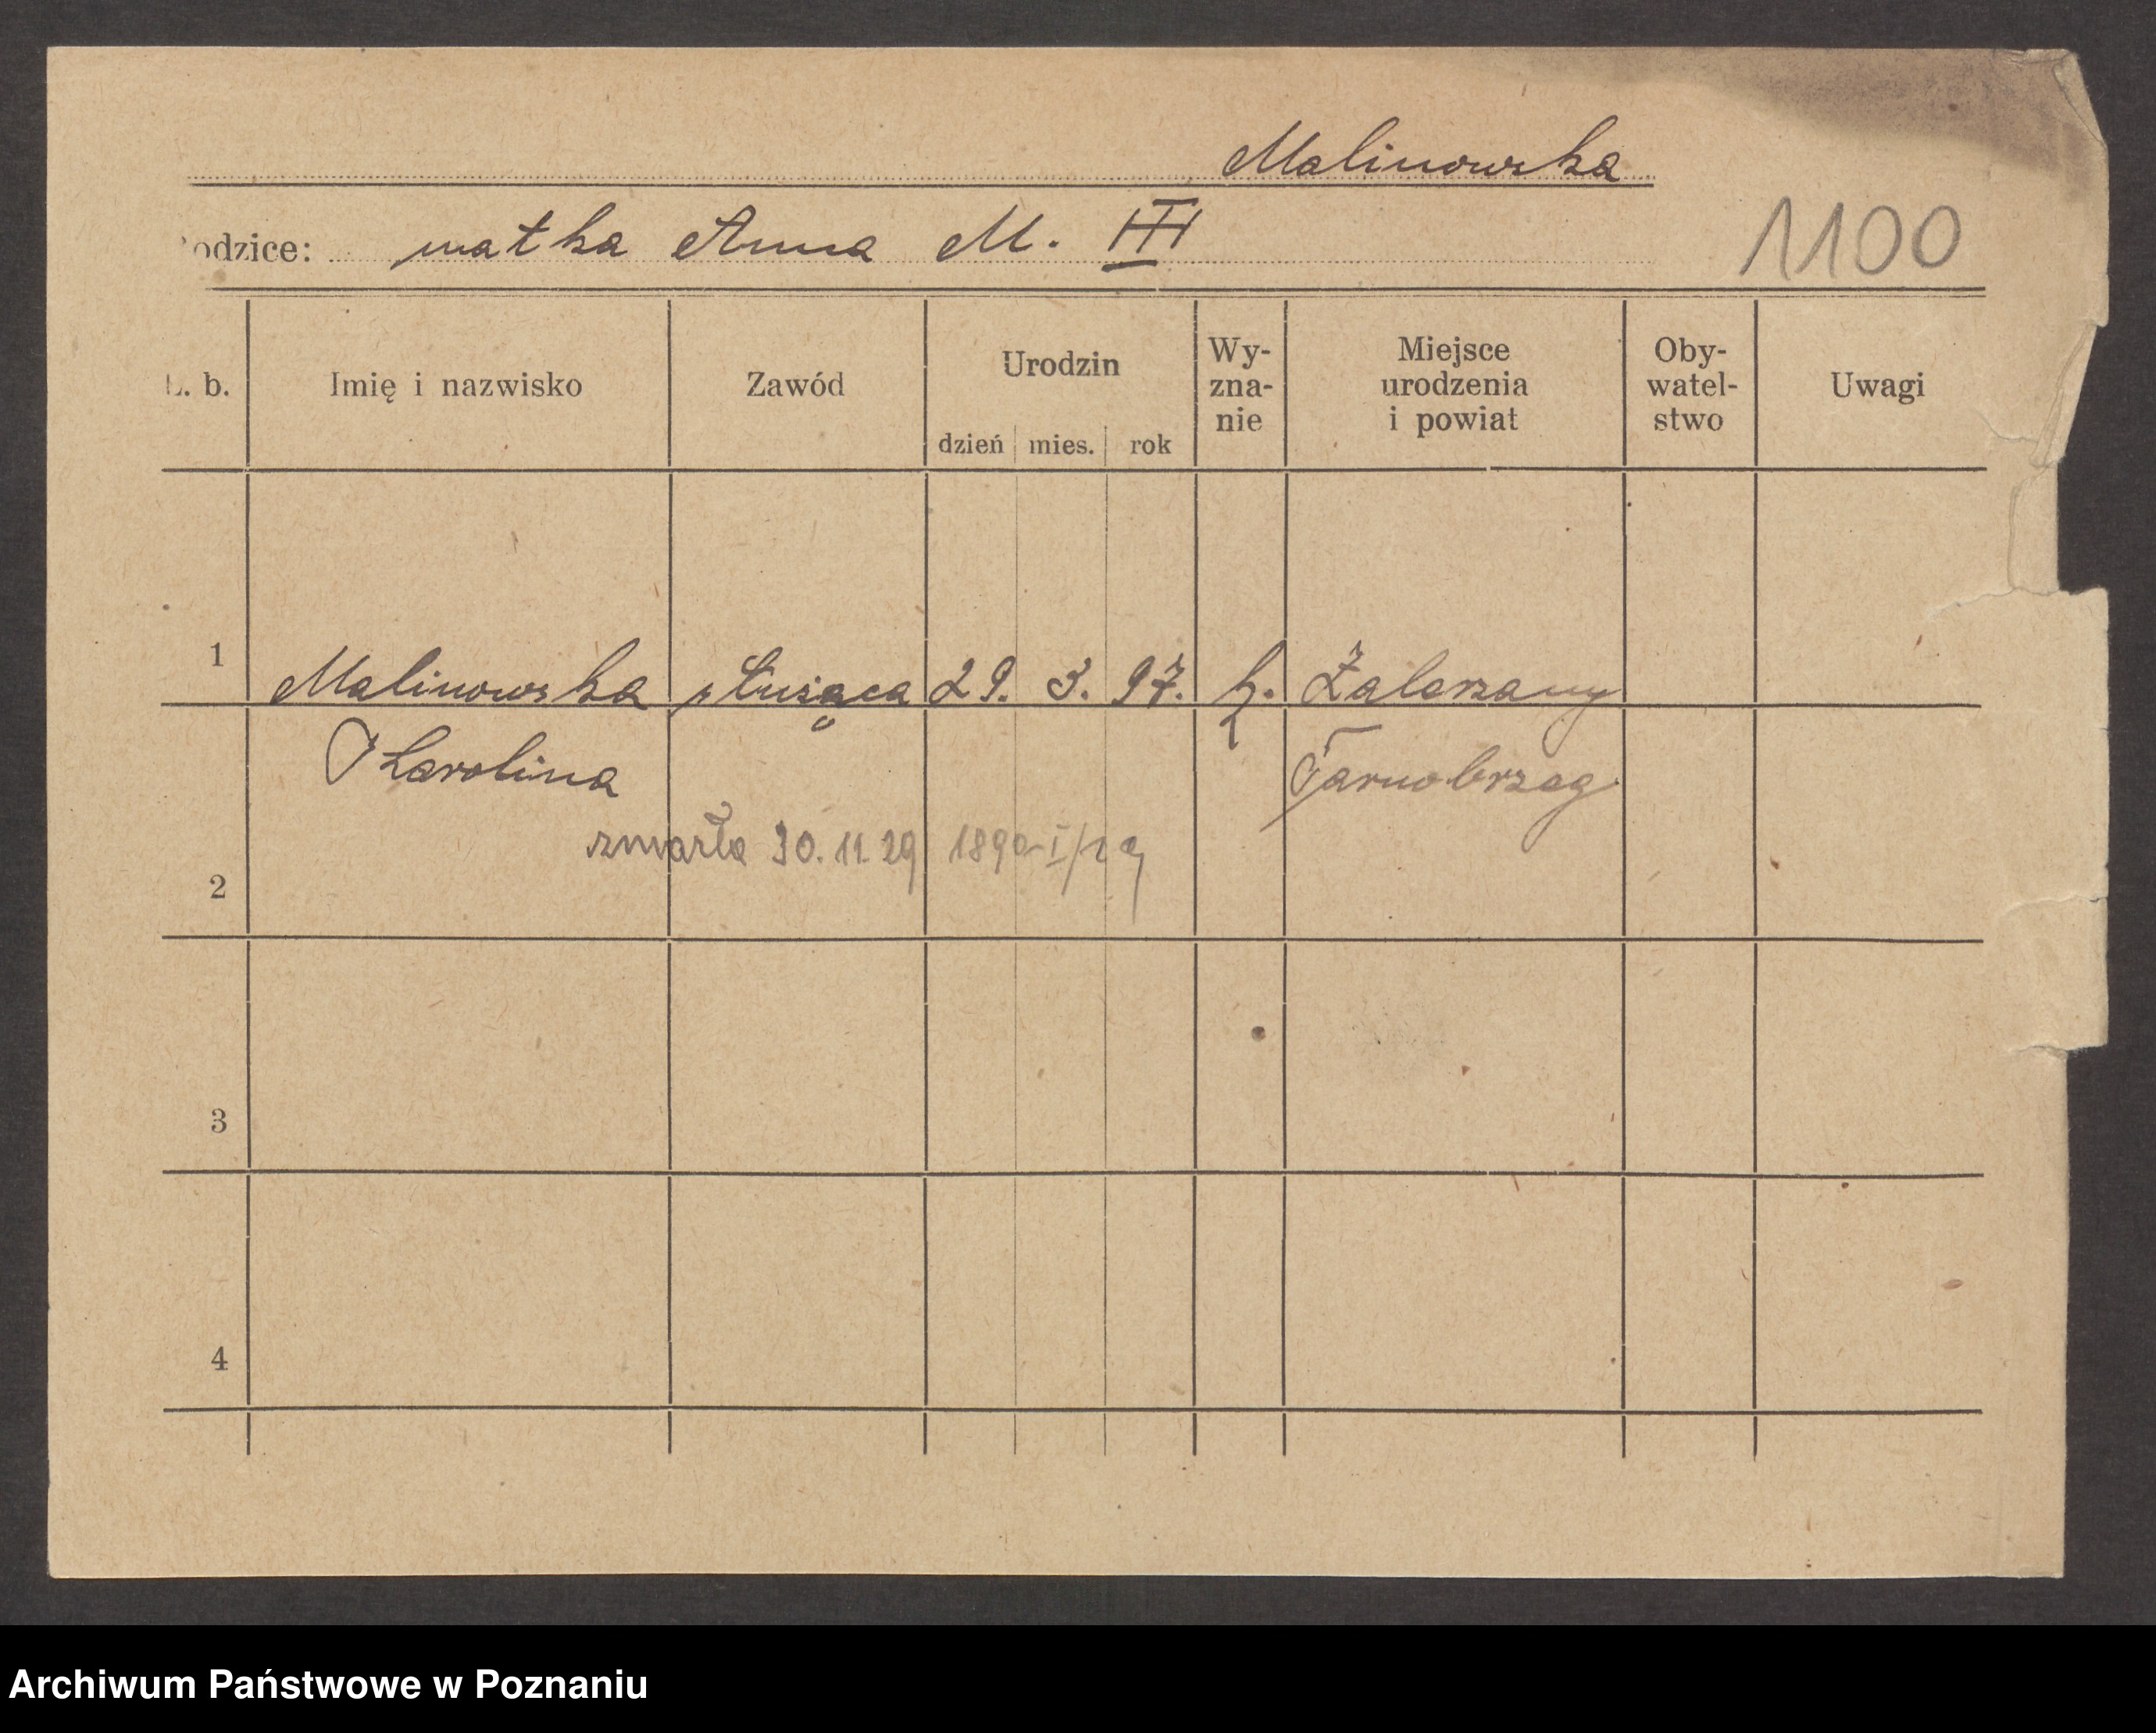 Malinowska
odzice: matka Anna M. III
1100
L. b. Imię i nazwisko Zawód Urodzin dzień mies. rok Wy-zna-nie Miejsce urodzenia i powiat Oby-watel-stwo Uwagi
1 Malinowska służąca 29. 3. 97. k. Zaleszany
Karolina Tarnobrzeg
zmarła 30. 11. 29
2
3
4
Archiwum Państwowe w Poznaniu